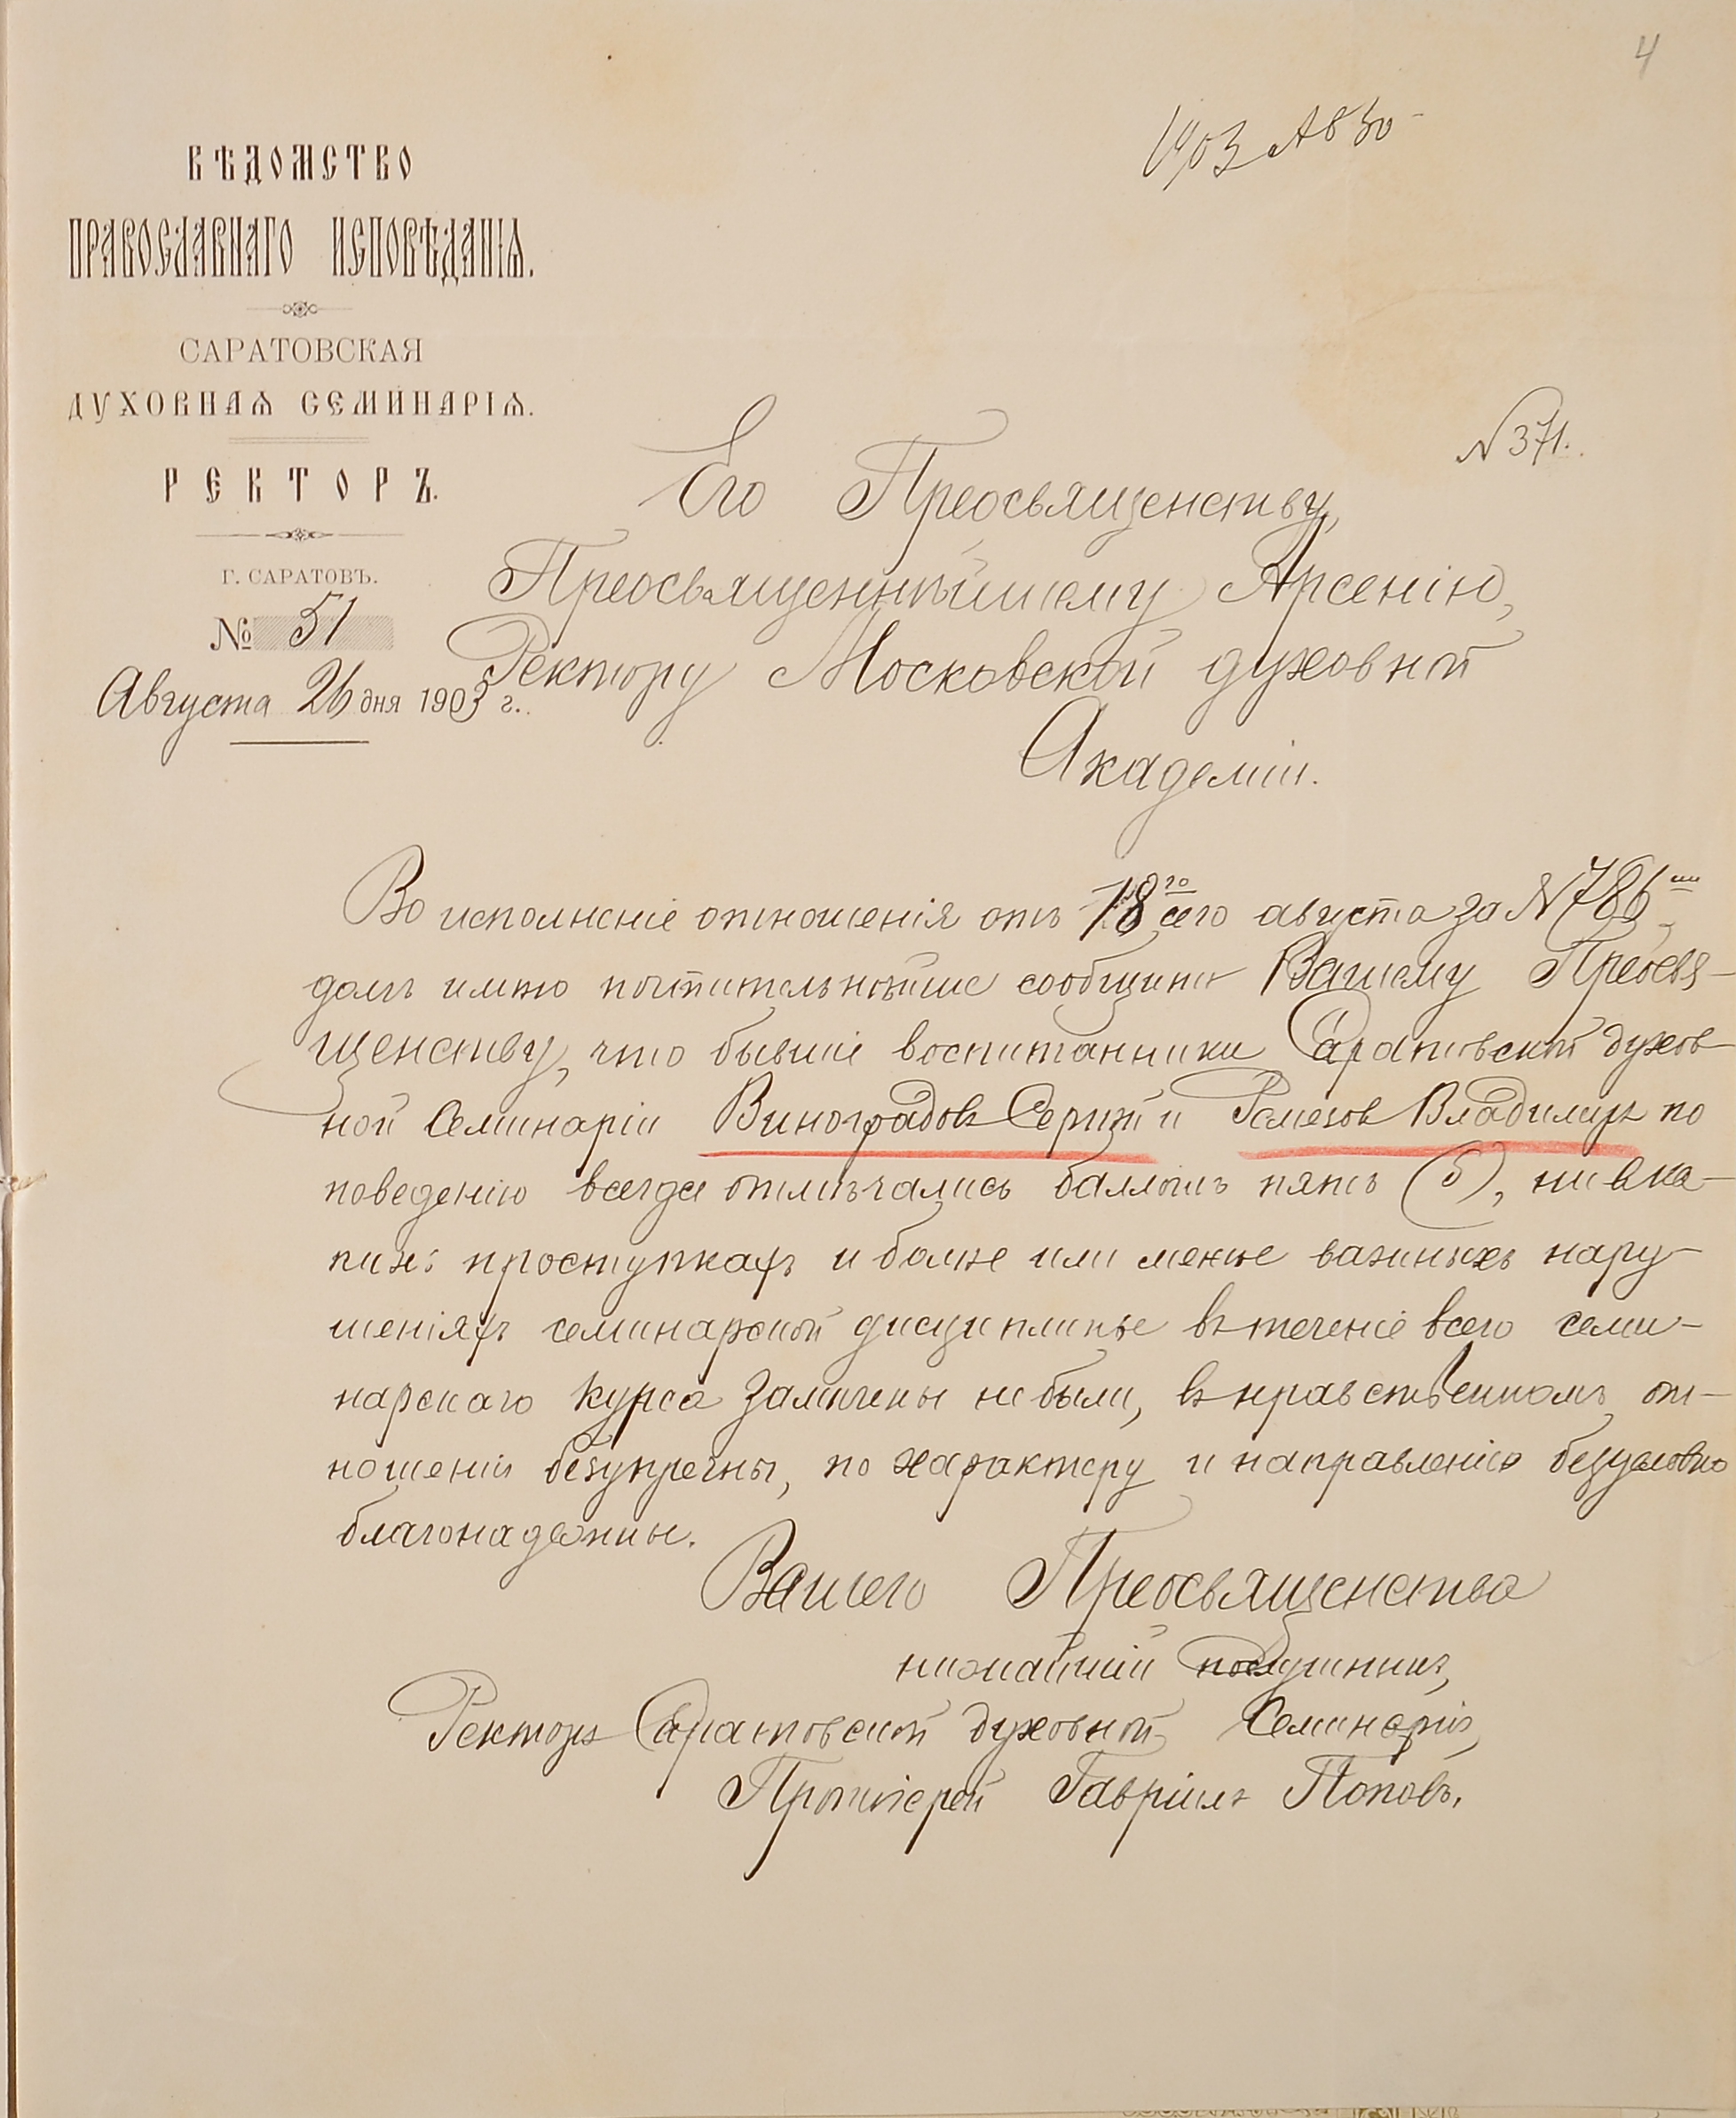 4
1903 Ав 30
ВѢДОМСТВО
ПРАВОСЛАВНАГО ИСПОВѢДАНІЯ.
САРАТОВСКАЯ
ДУХОВНАЯ СЕМИНАРІЯ.
РЕКТОРЪ.
Г. САРАТОВЪ.
№ 51
Августа 26 дня 1903 г.
N 371.
Его Преосвященству,
Преосвященнѣйшему Арсенію,
Ректору Московской духовной
Академіи.
Во исполненіе отношенія отъ 18го сего августа за N 786
долгъ имѣю почтительнѣйше сообщить Вашему Преосвя-
щенству, что бывшіе воспитанники Саратовской духов-
ной Семинаріи Виноградовъ Сергѣй и Ремезов Владимиръ по
поведенію всегда отмѣчались балломъ пять (5), ни в ка-
кихъ проступкахъ и болѣе или менѣе важныхъ нару-
шеніяхъ семинарской дисциплины въ теченіе всего семи-
нарскаго курса замѣчены не были, въ нравственномъ от-
ношеніи безупречны, по характеру и направленію безусловно
благонадежны.
Вашего Преосвященства
нижайшій послушникъ,
Ректоръ Саратовской духовной Семинаріи,
Протоіерей Гавріилъ Поповъ.